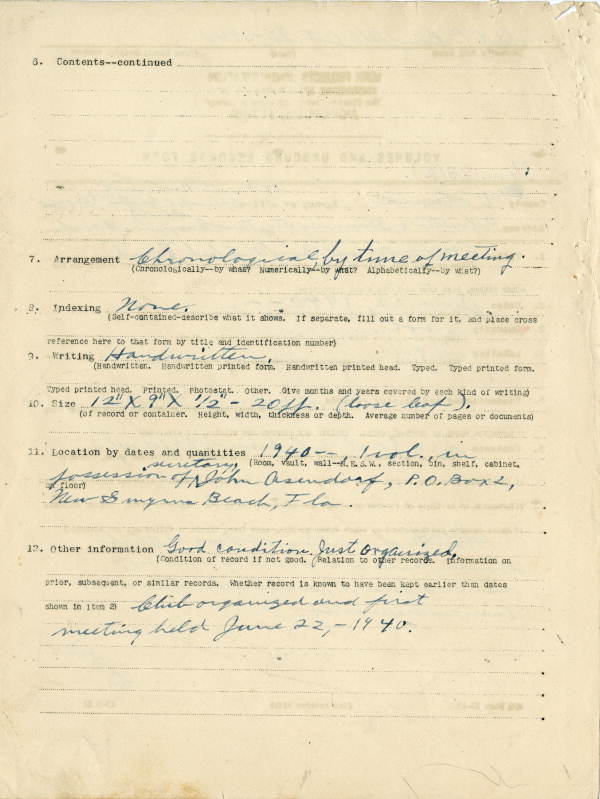 6. Contents--continued
7. Arrangement Chronological, by time of meeting.
(Chronologically--by what? Numerically--by what? Alphabetically--by what?)
8. Indexing None.
(Self-contained-describe what it shows. If separate, fill out a form for it, and place cross
reference here to that form by title and identification number)
9. Writing Handwritten.
(Handwritten. Handwritten printed form. Handwritten printed head. Typed. Typed printed form.
Typed printed head. Printed. Photostat. Other. Give months and years covered by each kind of writing)
10. Size 12" X 9" X 1/2" - 20 ff. (loose leaf).
(of record or container. Height, width, thickness or depth. Average number of pages or documents)
11. Location by dates and quantities 1940--, 1 vol., in
(Room, vault, wall--N.E.S.W., section, bin, shelf, cabinet,
or floor)
possession of secretary, John Asendorf, P.O. Box 2,
New Smyrna Beach, Fla.
12. Other information Good condition. Just organized.
(Condition of record if not good. Relation to other records. Information on
prior, subsequent, or similar records. Whether record is known to have been kept earlier than dates
shown in item 2) Club organized and first
meeting held June 22, - 1940.